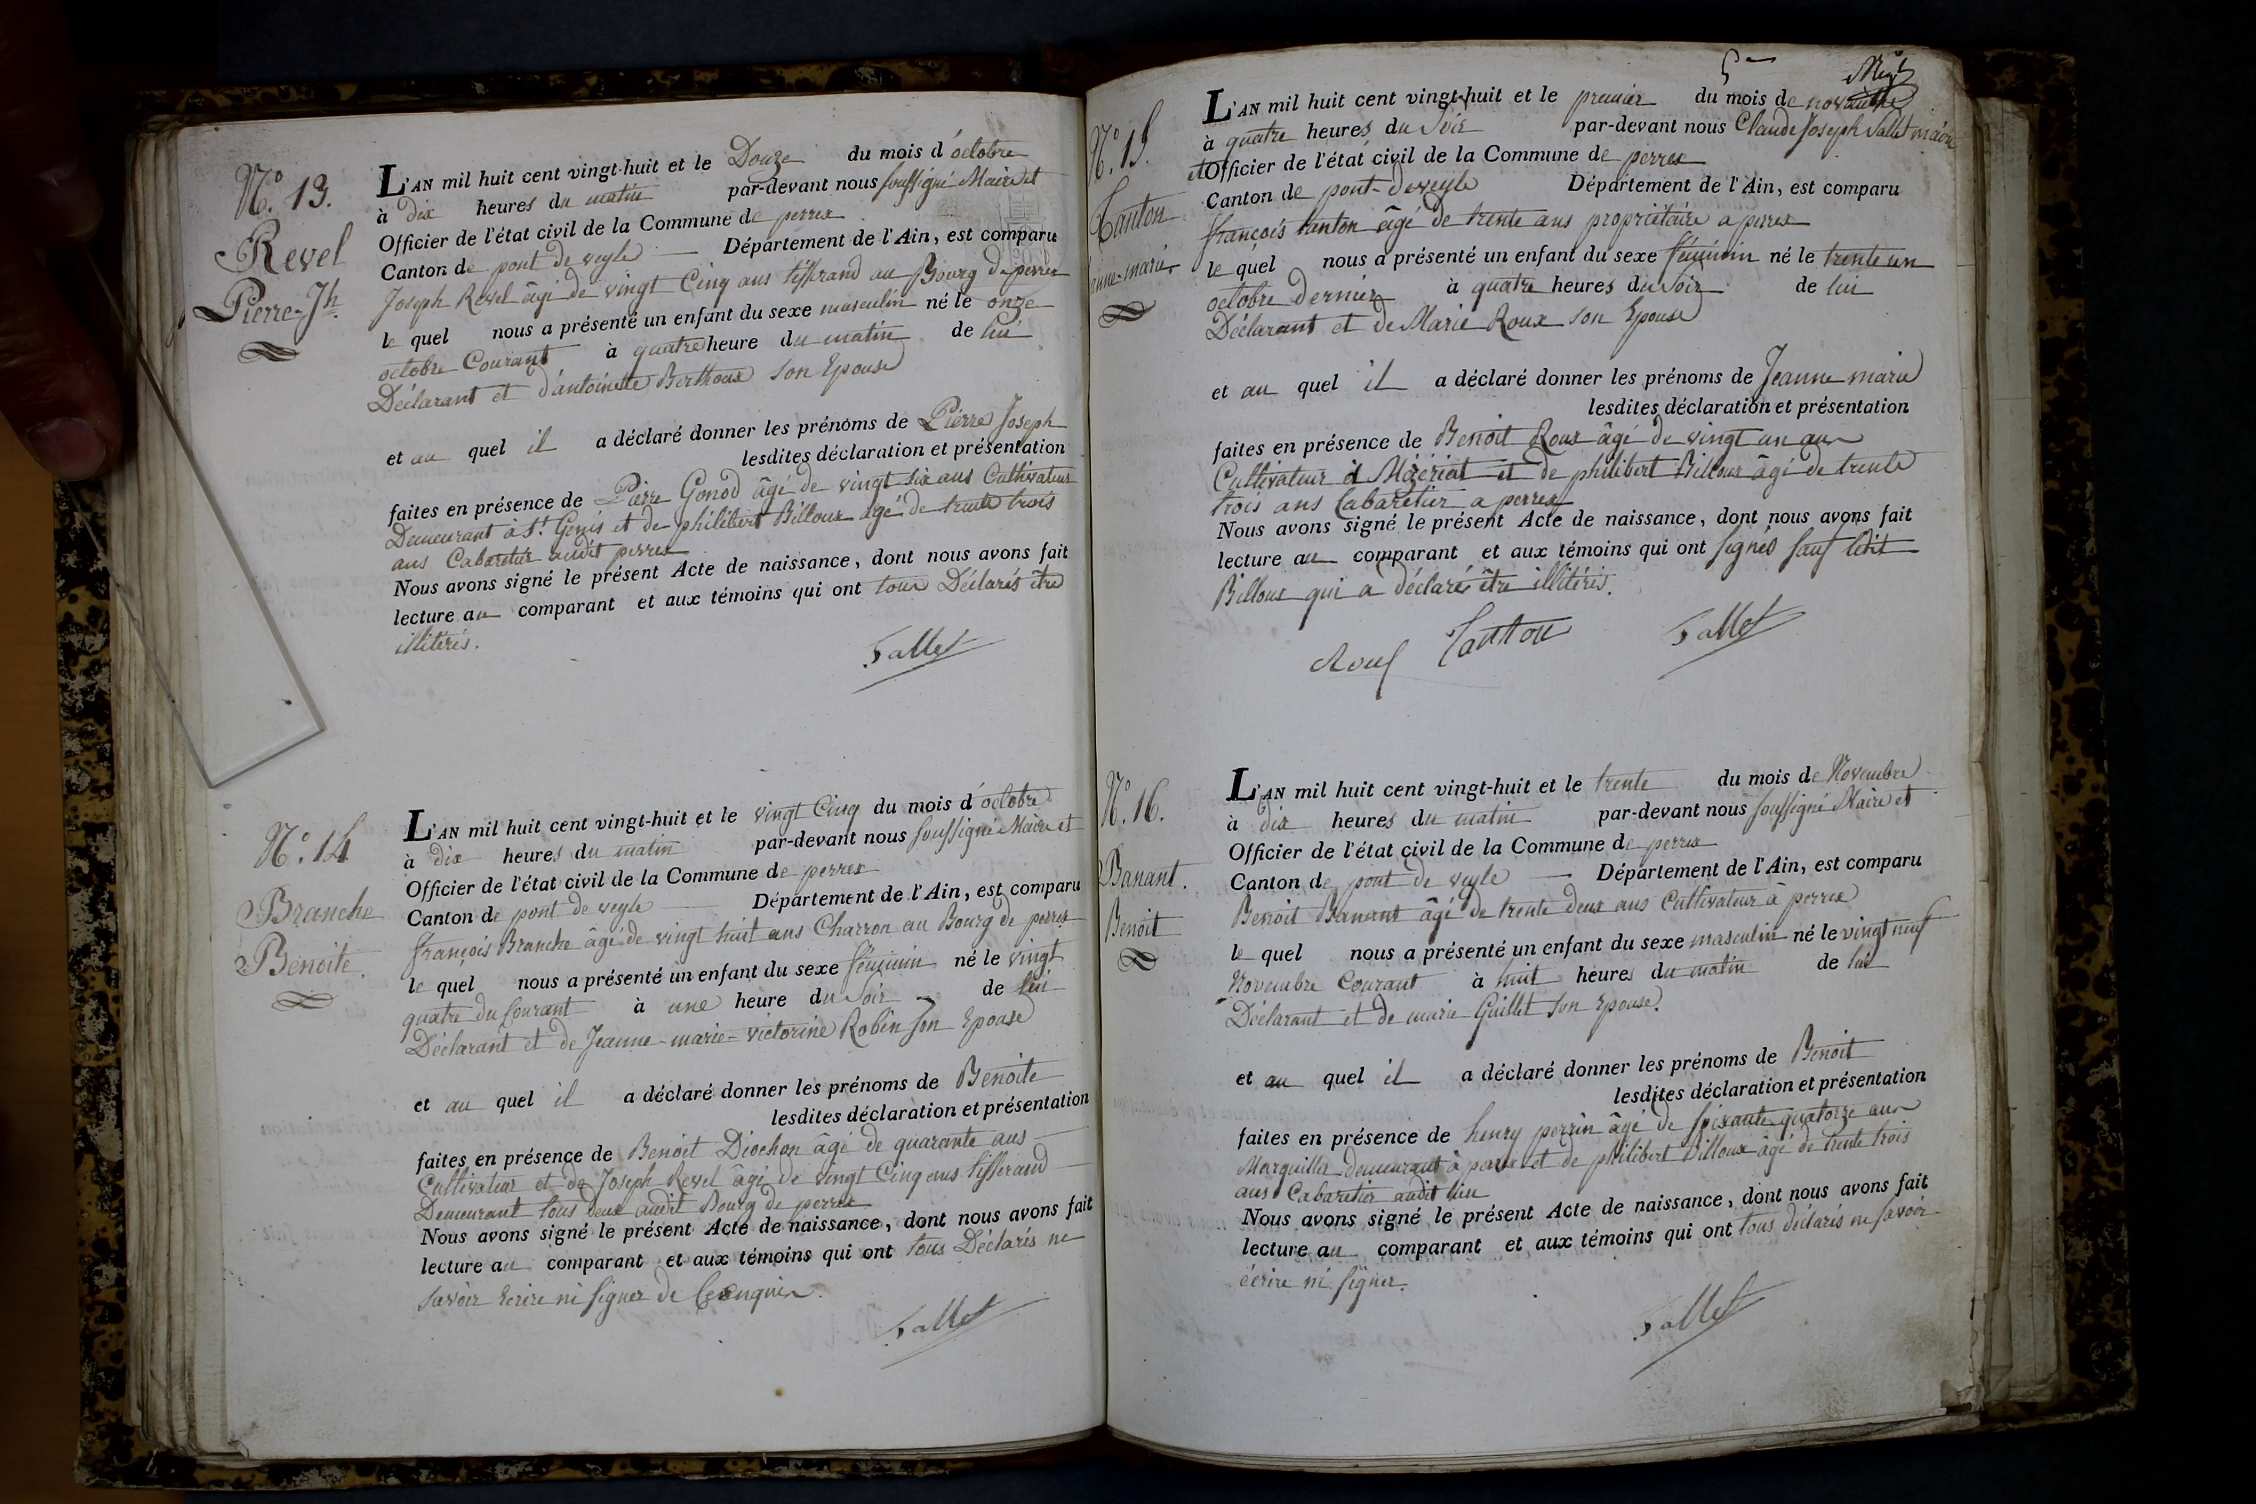 N.º 13.
Revel
Pierre-Jh
L'AN mil huit cent vingt-huit et le Douze du mois d'octobre
à dix heures du matin par-devant nous soussigné Maire et
Officier de l'état civil de la Commune de perrex
Canton de pont de veyle Département de l'Ain, est comparu
Joseph Revel âgé de vingt Cinq ans tisserand au Bourg de perrex
le quel nous a présenté un enfant du sexe masculin né le onze
octobre Courant à quatre heure du matin de lui
Déclarant et d'antoinette Berthoux son Epouse
et au quel il a déclaré donner les prénoms de Pierre Joseph
lesdites déclaration et présentation
faites en présence de Pierre Gonod âgé de vingt six ans Cultivateur
Demeurant à St. Genis et de philibert Billoux agé de trente trois
ans Cabaretier audit perrex
Nous avons signé le présent Acte de naissance, dont nous avons fait
lecture au comparant et aux témoins qui ont tous Déclarés être
illitérés.
Sallet
N.º 14
Branche
Benoite.
L'AN mil huit cent vingt-huit et le vingt Cinq du mois d'octobre
à dix heures du matin par-devant nous soussigné Maire et
Officier de l'état civil de la Commune de perrex
Canton de pont de veyle Département de l'Ain, est comparu
françois Branche âgé de vingt huit ans Charron au Bourg de perrex
le quel nous a présenté un enfant du sexe féminin né le vingt
quatre du Courant à une heure du soir de lui
Déclarant et de Jeanne-marie-victorine Robin son Epouse
et au quel il a déclaré donner les prénoms de Benoite
lesdites déclaration et présentation
faites en présence de Benoit Diochon âgé de quarante ans
Cultivateur et de Joseph Revel âgé de vingt Cinq ans tisserand
Demeurant tous deux audit Bourg de perrex
Nous avons signé le présent Acte de naissance, dont nous avons fait
lecture au comparant et aux témoins qui ont tous Déclarés ne
savoir Ecrire ni signer de Ce enquis.
Sallet
N.º 15.
Tanton
Jeanne-marie
L'AN mil huit cent vingt-huit et le premier du mois de novembre
à quatre heures du soir par-devant nous Claude Joseph Sallet maire
et Officier de l'état civil de la Commune de perrex
Canton de pont-de veyle Département de l'Ain, est comparu
françois tanton âgé de trente ans propriétaire a perrex
le quel nous a présenté un enfant du sexe féminin né le trente un
octobre dernier à quatre heures du soir de lui
Déclarant et de Marie Roux son Epouse
et au quel il a déclaré donner les prénoms de Jeanne marie
lesdites déclaration et présentation
faites en présence de Benoit Roux âgé de vingt un ans
Cultivateur à Mézériat et de philibert Billoux âgé de trente
trois ans Cabaretier a perrex
Nous avons signé le présent Acte de naissance, dont nous avons fait
lecture au comparant et aux témoins qui ont signés sauf ledit
Billoux qui a déclaré être illitéris.
Roux Tanton Sallet
N.º 16.
Banant.
Benoit
L'AN mil huit cent vingt-huit et le trente du mois de Novembre
à dix heures du matin par-devant nous soussigné Maire et
Officier de l'état civil de la Commune de perrex
Canton de pont de veyle Département de l'Ain, est comparu
Benoit Banant âgé de trente deux ans Cultivateur à perrex
le quel nous a présenté un enfant du sexe masculin né le vingt neuf
Novembre Courant à huit heures du matin de lui
Déclarant et de marie Guillet son Epouse.
et au quel il a déclaré donner les prénoms de Benoit
lesdites déclaration et présentation
faites en présence de henry perrin âgé de soixante quatorze ans
Marguillier demeurant à perrex et de philibert Billoux âgé de trente trois
ans Cabaretier audit lieu
Nous avons signé le présent Acte de naissance, dont nous avons fait
lecture au comparant et aux témoins qui ont tous déclarés ne savoir
écrire ni signer.
Sallet